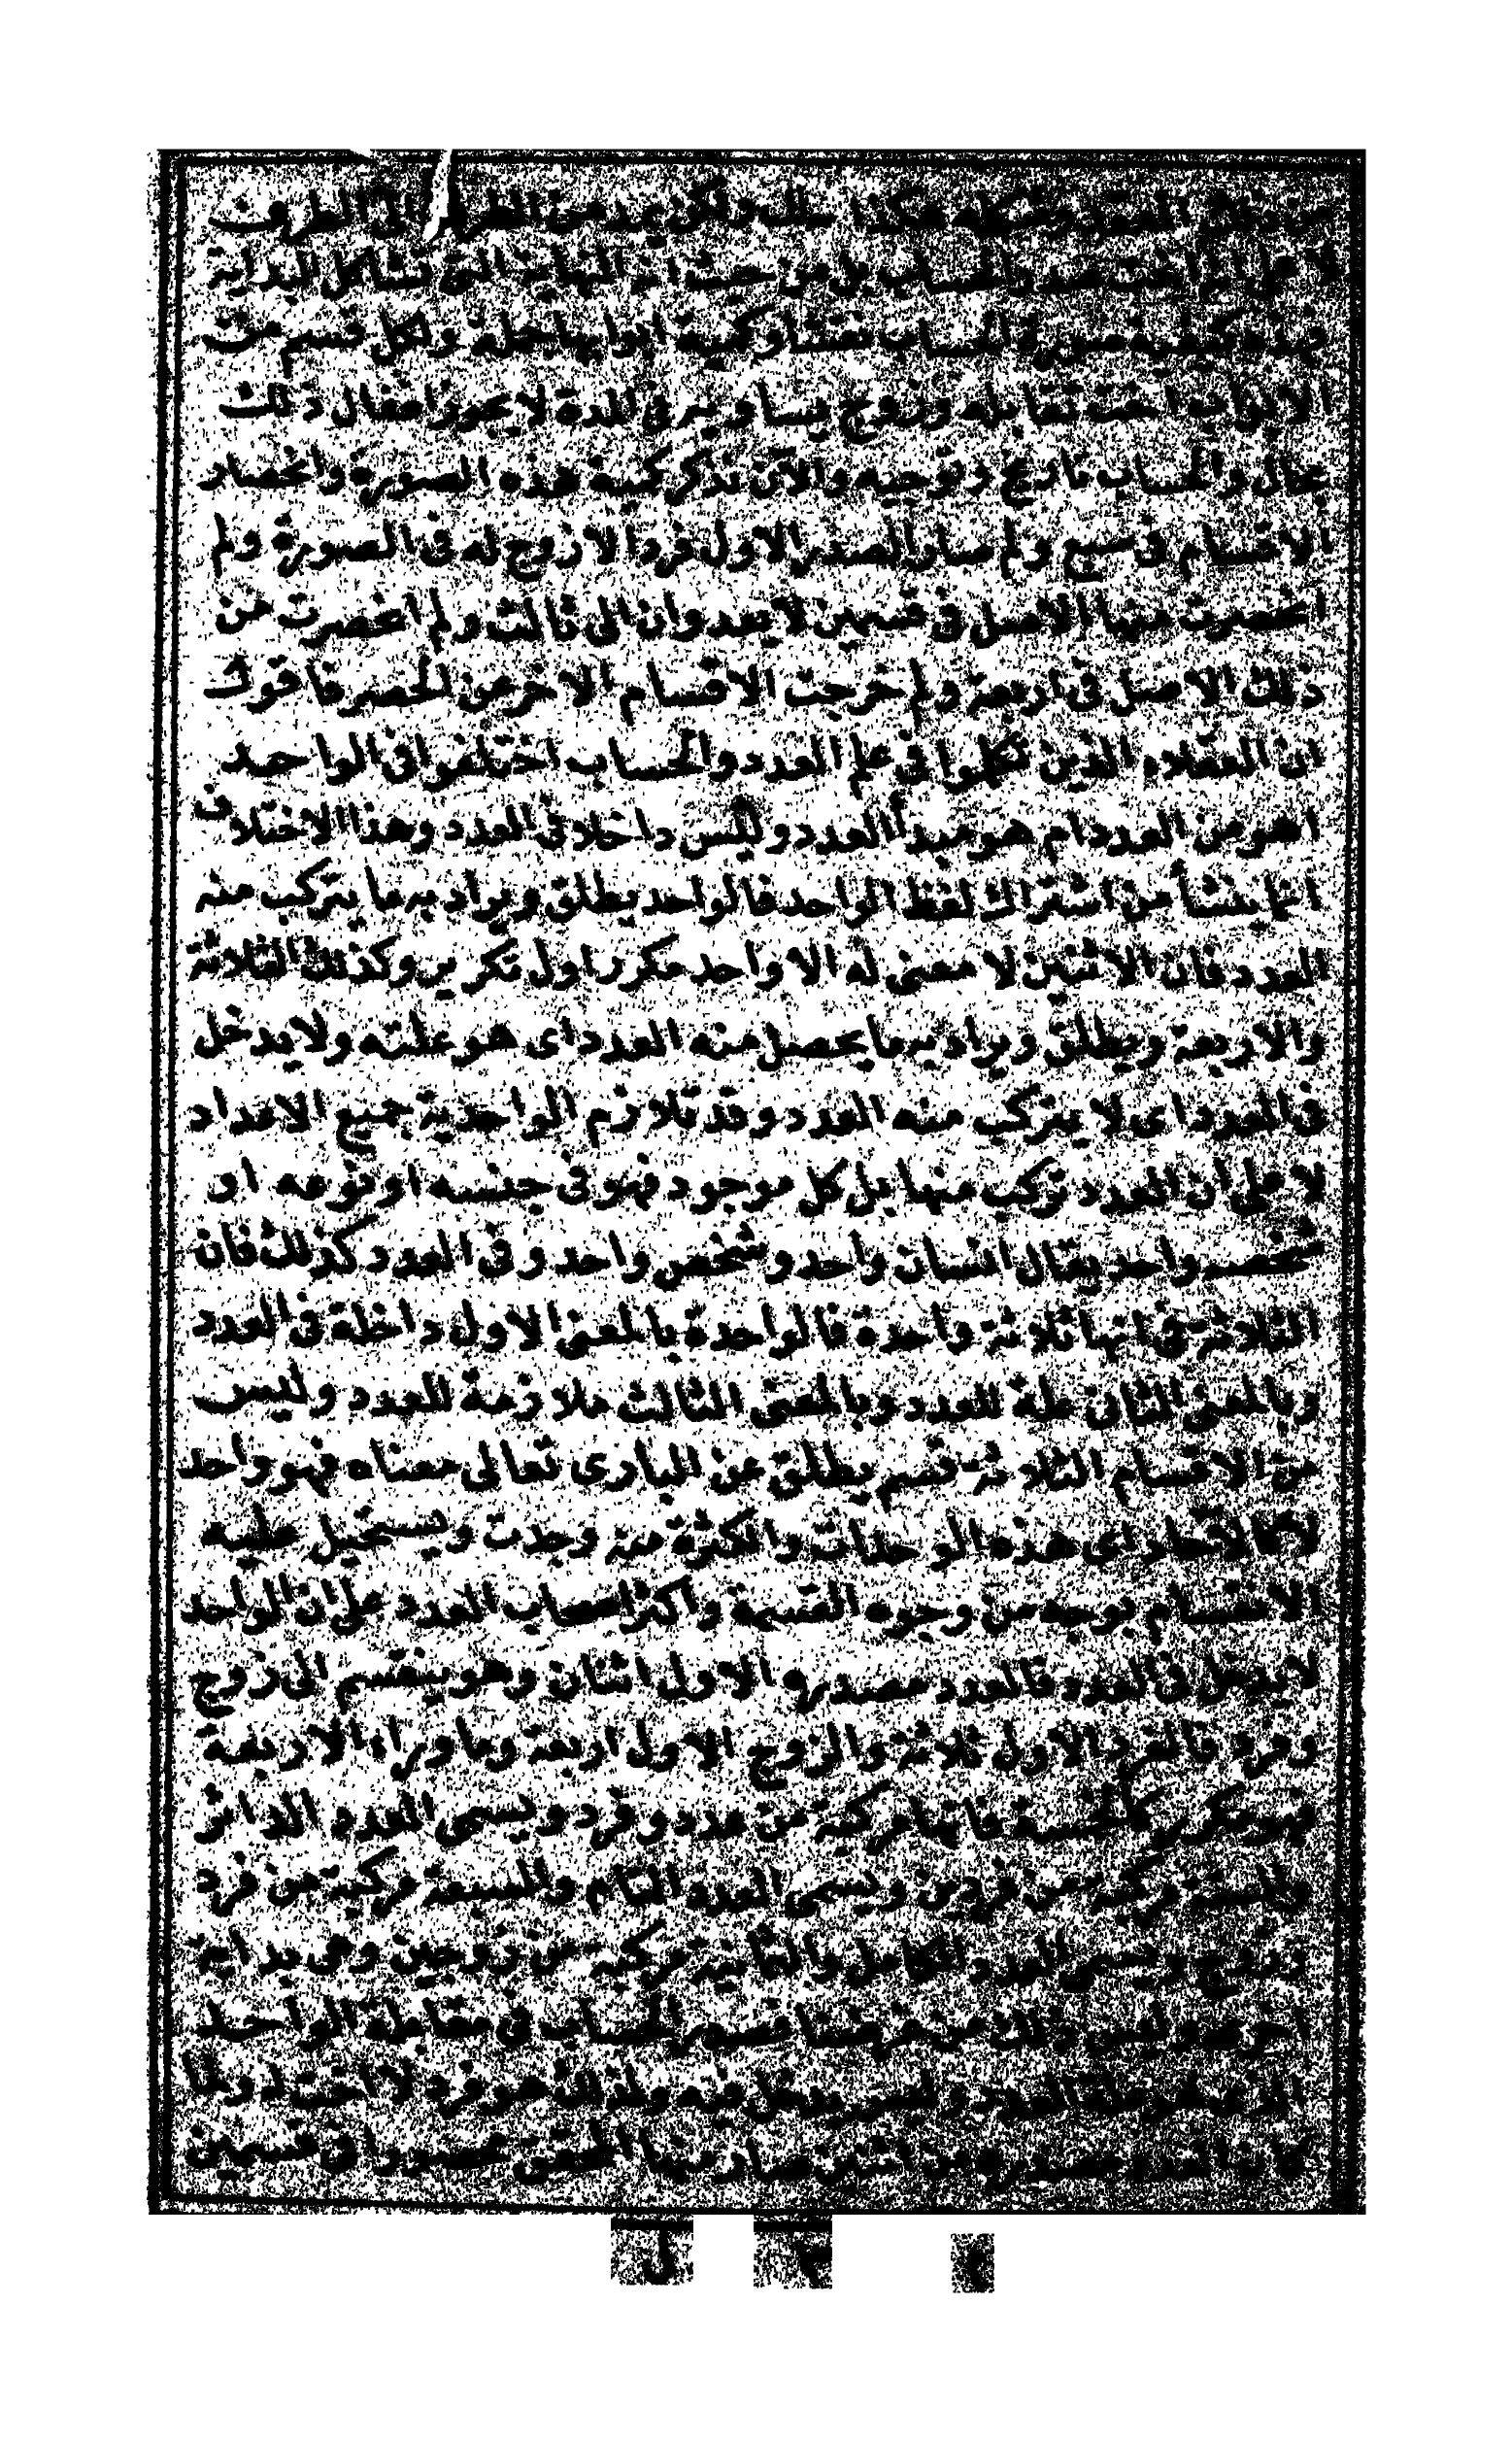 من دون الصدر وشكله هكذا سلك ولكن يمد من الطرف الى الطرف
لا على انها اخت صدر الحساب بل من حيث انه النهاية التي تشاكل البداية
فهذه كيفية صورة الحساب نقشا وكمية ابوابها جملة ولكل قسم من
الابواب اخت تقابله وزوج يساويه في المدة لا يجوز اغفال ذلك
بحال والحساب تاريخ وتوجيه والآن نذكر كمية هذه الصورة وانحصار
الاقسام في سبع ولم صار الصدر الاول فردا لا زوج له في الصورة ولم
انحصرت منها الاصل في قسمين لا يعدوان الى ثالث ولم انحصرت من
ذلك الاصل في اربعة ولم خرجت الاقسام الاخر من الحصر فاقول
ان العقلاء الذين تكلموا في علم العدد والحساب اختلفوا في الواحد
اهو من العدد ام هو مبدأ العدد وليس داخلا في العدد وهذا الاختلاف
انما ينشأ من اشتراك لفظ الواحد فالواحد يطلق ويراد به ما يتركب منه
العدد فان الاثنين لا معنى له الا واحد مكرر اول تكرير وكذلك الثلاثة
والاربعة ويطلق ويراد به ما يحصل منه العدد اى هو علته ولا يدخل
في العدد اى لا يتركب منه العدد وقد تلازم الواحدية جميع الاعداد
لا على ان العدد تركب منها بل كل موجود فهو في جنسه او نوعه او
شخصه واحد يقال انسان واحد وشخص واحد وفي العدد كذلك فان
الثلاثة في انها ثلاثة واحدة فالواحدة بالمعنى الاول داخلة في العدد
وبالمعنى الثانى علة للعدد وبالمعنى الثالث ملازمة للعدد وليس
من الاقسام الثلاثة قسم يطلق عن البارى تعالى معناه فهو واحد
لا كالآحاد اى هذه الوحدات والكثرة منه وجدت ويستحيل عليه
الانقسام بوجه من وجوه القسمة واكثر اصحاب العدد على ان الواحد
لا يدخل في العدد فالعدد مصدره الاول اثنان وهو ينقسم الى زوج
وفرد فالفرد الاول ثلاثة والزوج الاول اربعة وما وراء الاربعة
فهو مكرر كالخمسة فانها مركبة من عدد وفرد ويسمى العدد الدائر
والستة مركبة من فردين ويسمى العدد التام والسبعة مركبة من فرد
وزوج ويسمى العدد الكامل والثمانية مركبة من زوجين وهي بداية
اخرى وليس ذلك من غرضنا فصدر الحساب في مقابلة الواحد
الذى هو علة العدد وليس يدخل فيه ولذلك هو فرد لا اخت له ولما
كان العدد مصدره من اثنين صار منها المحقق محصورا في قسمين